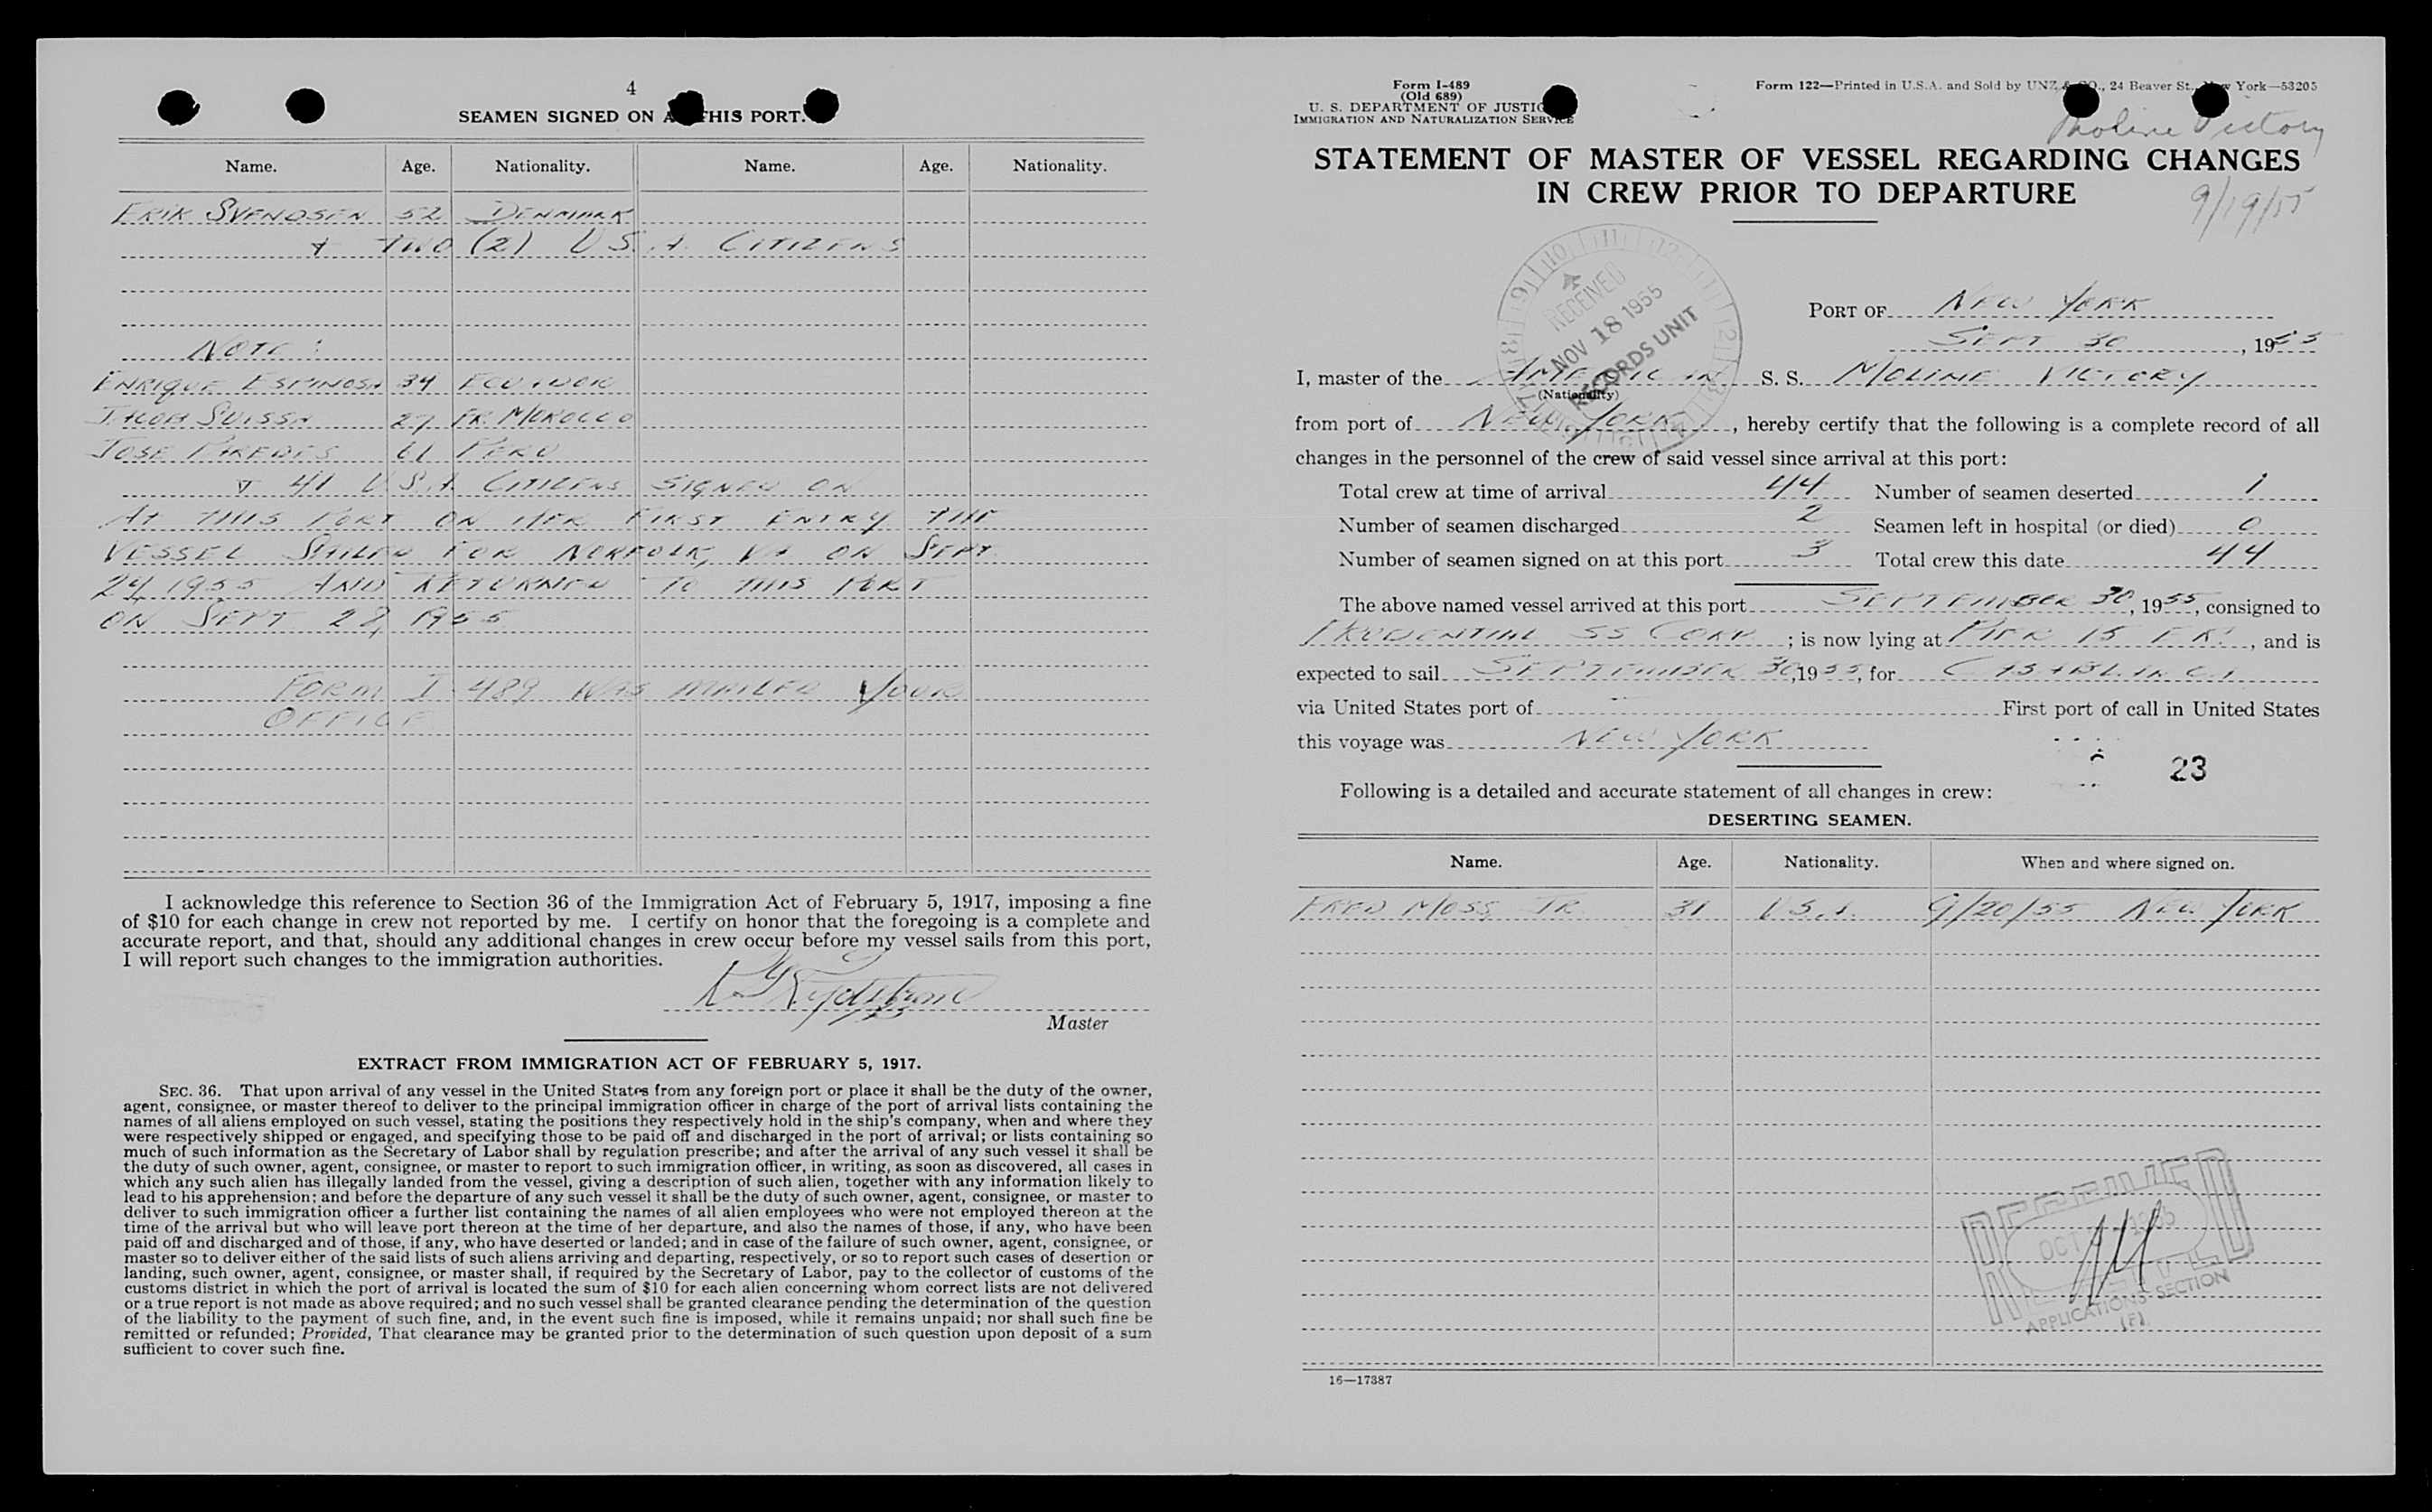 4
SEAMEN SIGNED ON THIS PORT.
Name. Age. Nationality. Name. Age. Nationality.
ERIK SVENDSEN 52 DENMARK
+ TWO (2) U.S.A. CITIZENS
NOTE:
ENRIQUE ESPINOSA 34 ECUADOR
JACOB SUISSA 27 FR. MOROCCO
JOSE PAREDES 61 PERU
+ 41 U.S.A. CITIZENS SIGNED ON
AT THIS PORT ON HER FIRST ENTRY THE
VESSEL SAILED FOR NORFOLK, VA ON SEPT
24, 1955 AND RETURNED TO THIS PORT
ON SEPT 28, 1955
FORM I-489 WAS MAILED YOUR
OFFICE
I acknowledge this reference to Section 36 of the Immigration Act of February 5, 1917, imposing a fine
of $10 for each change in crew not reported by me. I certify on honor that the foregoing is a complete and
accurate report, and that, should any additional changes in crew occur before my vessel sails from this port,
I will report such changes to the immigration authorities.
Master
EXTRACT FROM IMMIGRATION ACT OF FEBRUARY 5, 1917.
SEC. 36. That upon arrival of any vessel in the United States from any foreign port or place it shall be the duty of the owner,
agent, consignee, or master thereof to deliver to the principal immigration officer in charge of the port of arrival lists containing the
names of all aliens employed on such vessel, stating the positions they respectively hold in the ship's company, when and where they
were respectively shipped or engaged, and specifying those to be paid off and discharged in the port of arrival; or lists containing so
much of such information as the Secretary of Labor shall by regulation prescribe; and after the arrival of any such vessel it shall be
the duty of such owner, agent, consignee, or master to report to such immigration officer, in writing, as soon as discovered, all cases in
which any such alien has illegally landed from the vessel, giving a description of such alien, together with any information likely to
lead to his apprehension; and before the departure of any such vessel it shall be the duty of such owner, agent, consignee, or master to
deliver to such immigration officer a further list containing the names of all alien employees who were not employed thereon at the
time of the arrival but who will leave port thereon at the time of her departure, and also the names of those, if any, who have been
paid off and discharged and of those, if any, who have deserted or landed; and in case of the failure of such owner, agent, consignee, or
master so to deliver either of the said lists of such aliens arriving and departing, respectively, or so to report such cases of desertion or
landing, such owner, agent, consignee, or master shall, if required by the Secretary of Labor, pay to the collector of customs of the
customs district in which the port of arrival is located the sum of $10 for each alien concerning whom correct lists are not delivered
or a true report is not made as above required; and no such vessel shall be granted clearance pending the determination of the question
of the liability to the payment of such fine, and, in the event such fine is imposed, while it remains unpaid; nor shall such fine be
remitted or refunded; Provided, That clearance may be granted prior to the determination of such question upon deposit of a sum
sufficient to cover such fine.
Form I-489
(Old 689)
U. S. DEPARTMENT OF JUSTICE
IMMIGRATION AND NATURALIZATION SERVICE
Form 122—Printed in U.S.A. and Sold by UNZ & CO., 24 Beaver St., New York—53205
Moline Victory
STATEMENT OF MASTER OF VESSEL REGARDING CHANGES
IN CREW PRIOR TO DEPARTURE
9/19/55
RECEIVED
NOV 18 1955
RECORDS UNIT
PORT OF NEW YORK
SEPT 30, 1955
I, master of the AMERICAN S. S. MOLINE VICTORY
(Nationality)
from port of NEW YORK, hereby certify that the following is a complete record of all
changes in the personnel of the crew of said vessel since arrival at this port:
Total crew at time of arrival 44 Number of seamen deserted 1
Number of seamen discharged 2 Seamen left in hospital (or died) 0
Number of seamen signed on at this port 3 Total crew this date 44
The above named vessel arrived at this port SEPTEMBER 30, 1955, consigned to
PRUDENTIAL SS CORP; is now lying at PIER 15 E.R., and is
expected to sail SEPTEMBER 30, 1955, for CASABLANCA
via United States port of First port of call in United States
this voyage was NEW YORK
23
Following is a detailed and accurate statement of all changes in crew:
DESERTING SEAMEN.
Name. Age. Nationality. When and where signed on.
FRED MOSS JR. 31 U.S.A. 9/20/55 NEW YORK
RECEIVED
OCT 1955
APPLICATIONS SECTION
(F)
16—17387